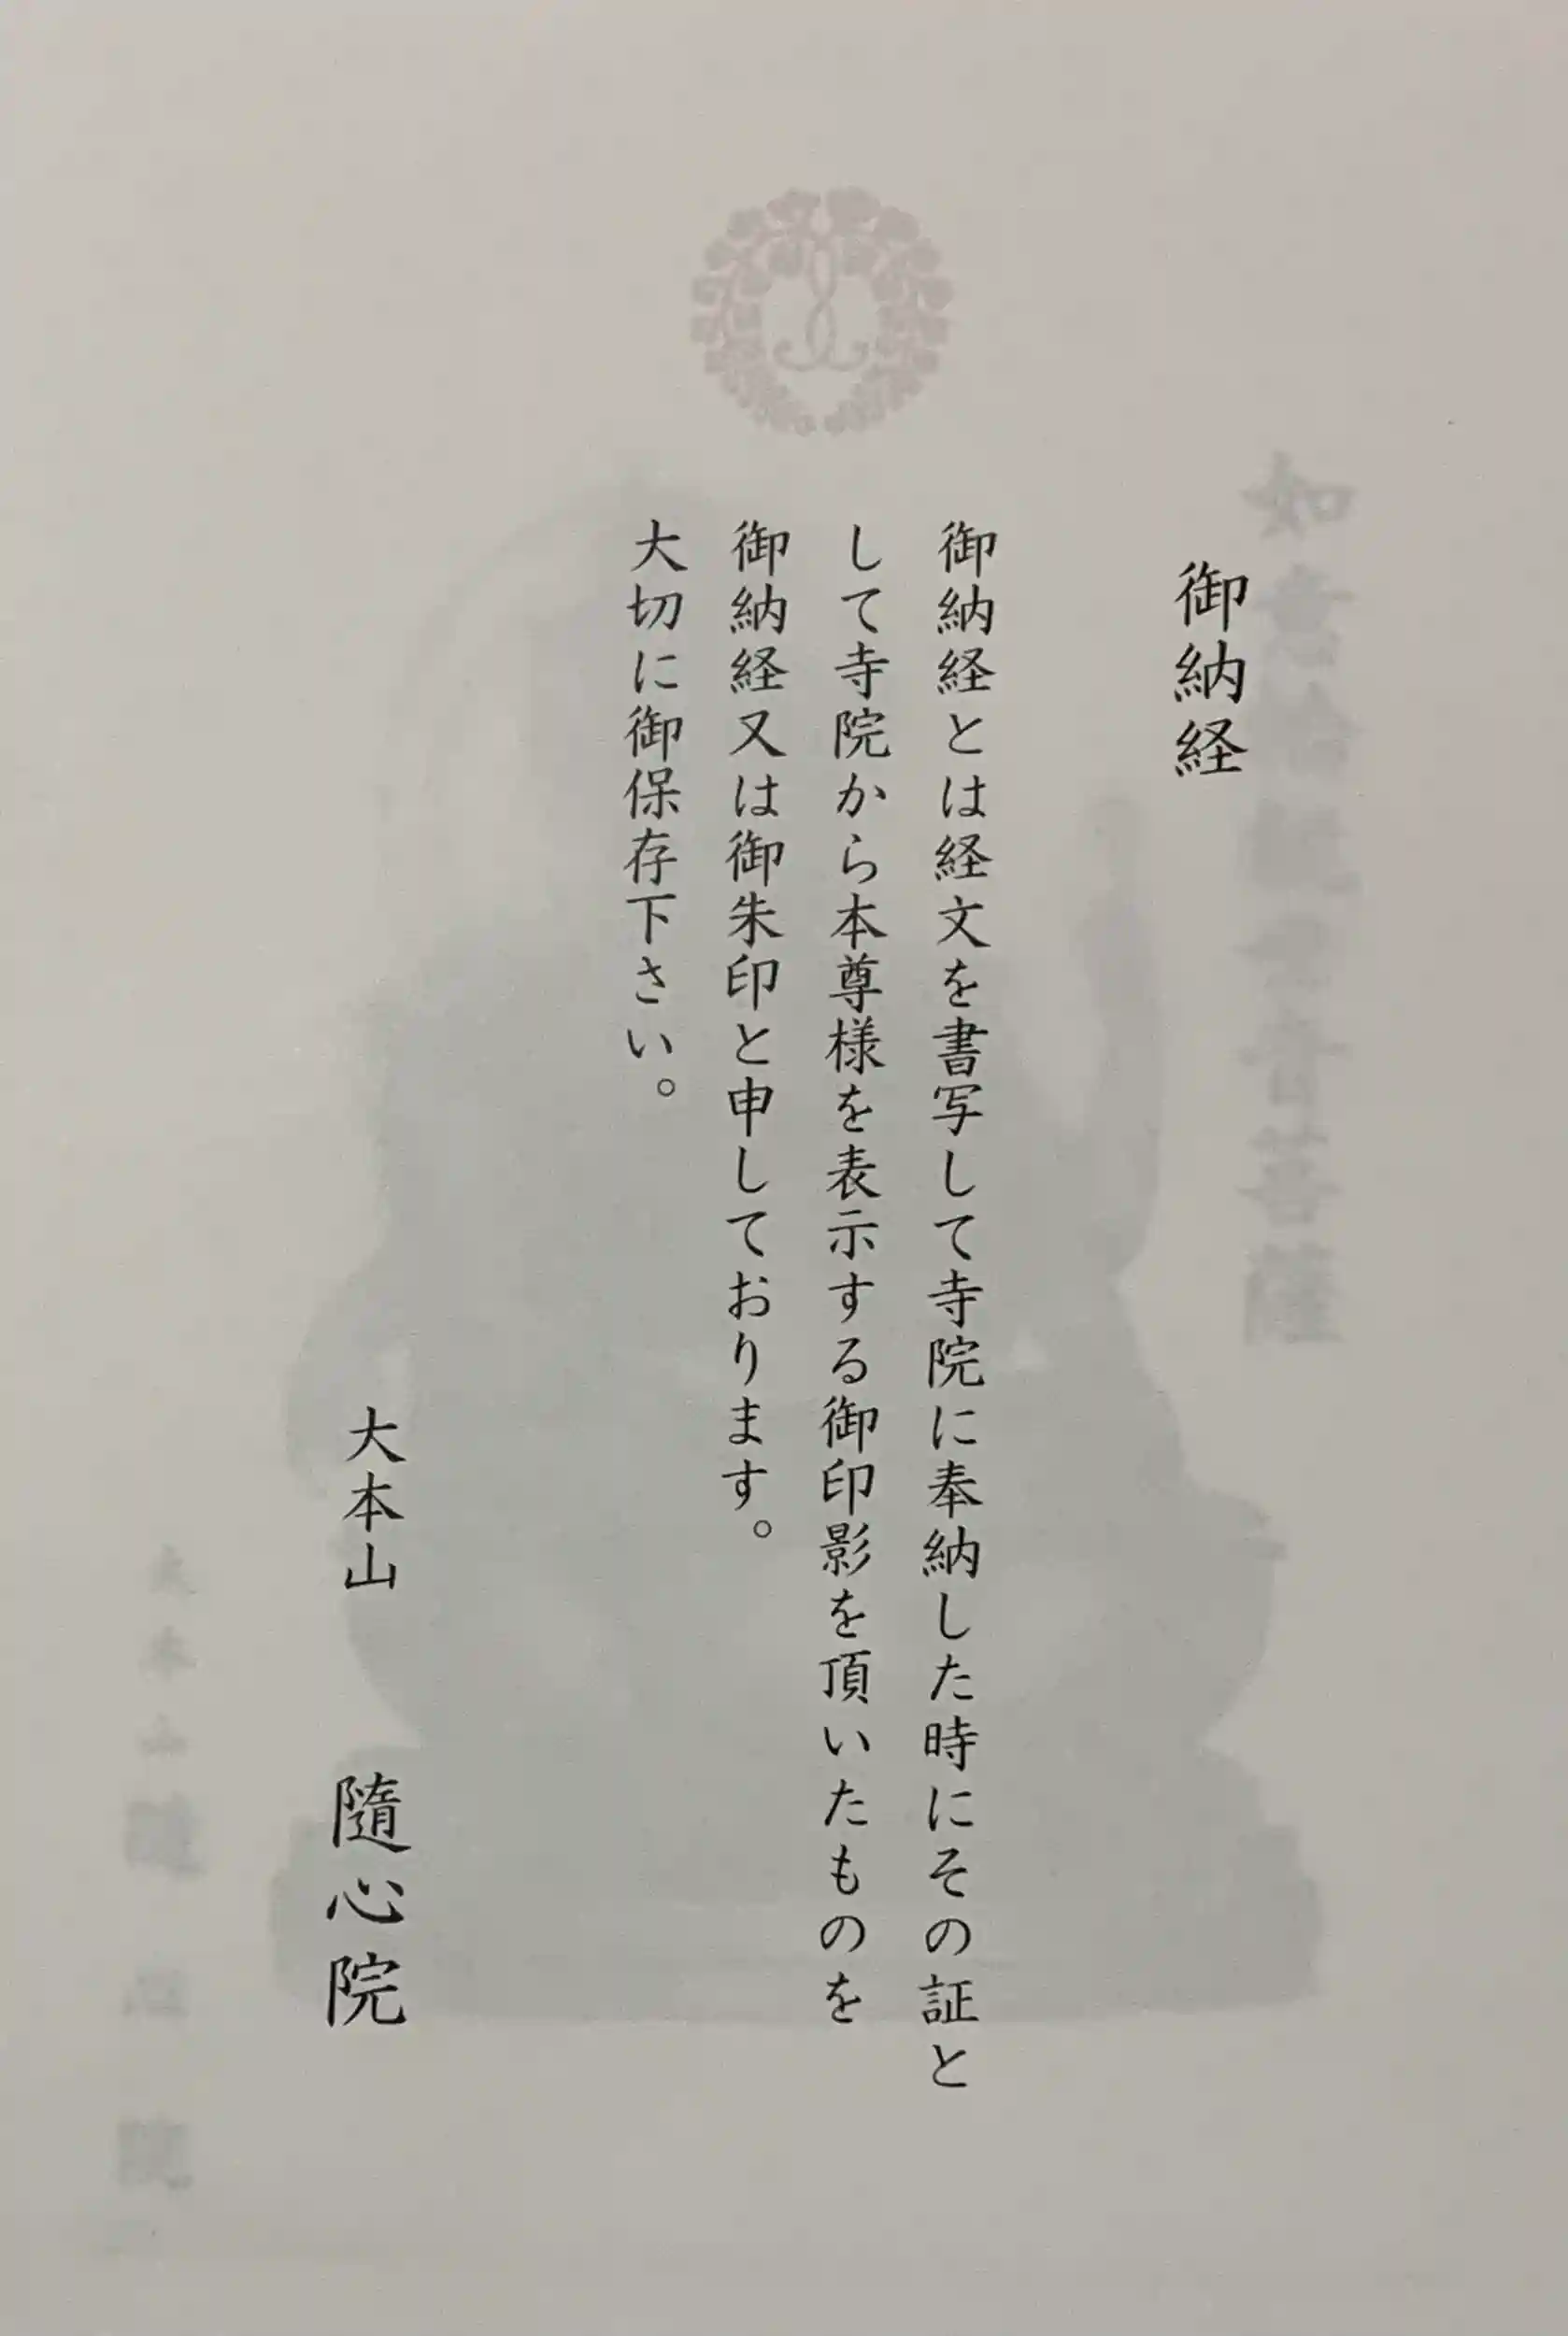 如意輪観世音菩薩
御納経
御納経とは経文を書写して寺院に奉納した時にその証と
して寺院から本尊様を表示する御印影を頂いたものを
御納経又は御朱印と申しております。
大切に御保存下さい。
大本山 隨心院
大本山 隨心院